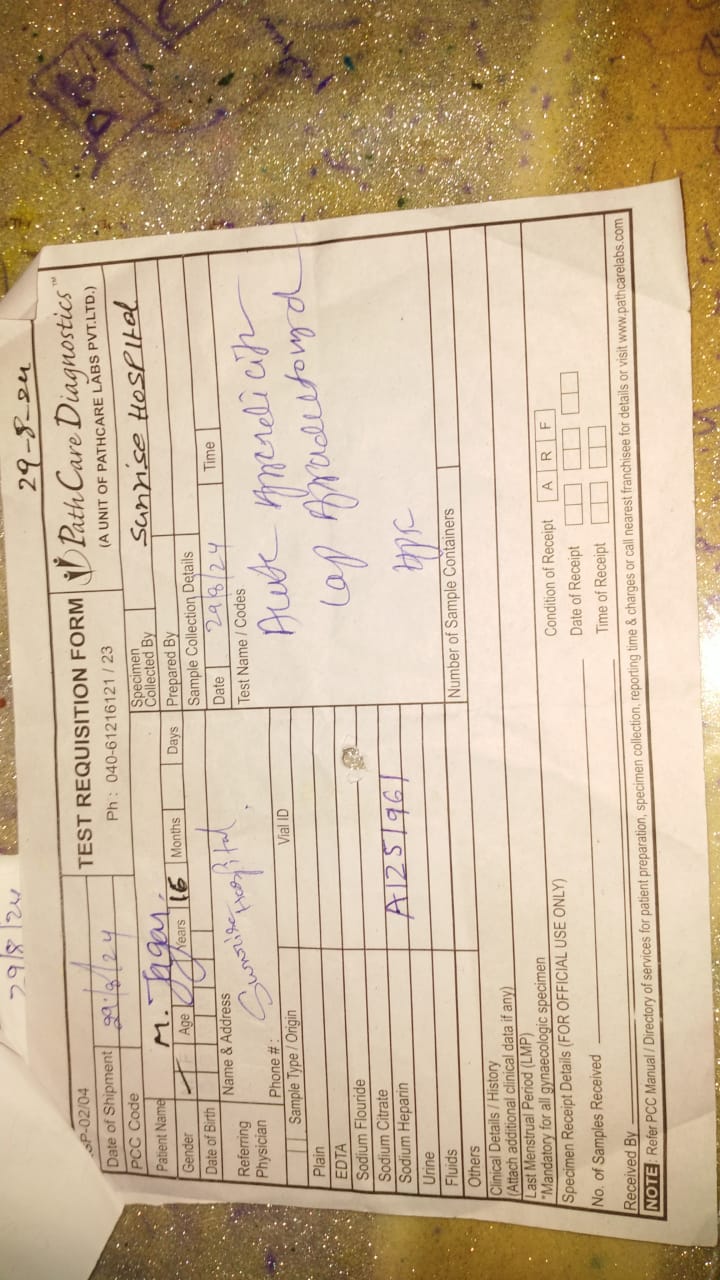 29/8/24
29-8-24
SP-02/04
TEST REQUISITION FORM
PathCare Diagnostics™
(A UNIT OF PATHCARE LABS PVT.LTD.)
Date of Shipment 29/8/24
Ph : 040-61216121 / 23
PCC Code
Specimen Collected By
Sunrise HOSPItal
Patient Name M.
Prepared By
Gender
Age
Years 16 Months Days
Sample Collection Details
Date of Birth
Date 29/8/24 Time
Referring Physician
Name & Address
Sunrise Hospital
Phone # :
Test Name / Codes
Acute
Lap
HPE
Sample Type / Origin
Vial ID
Plain
EDTA
Sodium Flouride
Sodium Citrate
Sodium Heparin
A1251961
Urine
Fluids
Others
Number of Sample Containers
Clinical Details / History
(Attach additional clinical data if any)
Last Menstrual Period (LMP)
*Mandatory for all gynaecologic specimen
Specimen Receipt Details (FOR OFFICIAL USE ONLY)
Condition of Receipt A R F
No. of Samples Received
Date of Receipt
Received By
Time of Receipt
NOTE : Refer PCC Manual / Directory of services for patient preparation, specimen collection, reporting time & charges or call nearest franchisee for details or visit www.pathcarelabs.com